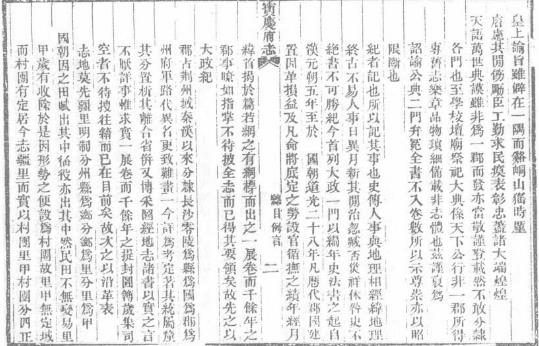 皇上諭旨雖僻在一隅而谿峒山猺時厪
宸慮其開飭勵臣工勤求民瘼表彰忠藎諸大端煌煌
天語萬世典謨雖非爲一郡而發亦當敬謹登載然不敢分隸
各門也至學校壇廟祭祀大典係天下公行非一郡所得
專舊志樂章品物瑣細備載非志體也茲謹裒爲
詔諭公典二門弁冕全書不入卷數所以示尊崇亦以昭
限斷也
紀者記也所以記其事也史傳人事與地理相經緯地理
終古不易人事日異月新其開治忽臧否災祥休咎史不
絕書不可勝紀今首列大政一門以編年史法書之起自
漢元朔五年至於 國朝道光二十八年凡歷代郡國建
置因革損益及凡命將底定之勞設官循撫之績年經月
寶慶府志 總目例言 二
緯首揭於篇若綱之有綱而出之一展卷而千餘年之
郡事瞭如指掌不待披全志而已得其要領矣故先之以
大政紀
郡古荆州域秦漢以來分隸長沙零陵爲縣爲國爲郡爲
州府軍路代異名更致難畫一今詳爲考定若其統屬
其分置析其離合省倂又博采圖經地志諸書以實之言
不厭詳事惟求實一展卷而千餘年之提封圖籍歲集司
空者不待搜往籍而已在目前矣故次之以沿革表
志地莫先疆里明制分州縣爲鄉分鄉爲里分里爲甲
國朝因之田賦出其中徭役亦出其中然民田不無變易里
甲歲有收除於是因形勢之便設爲村團故里甲無定域
而村團有定居今志疆里而實以村團里甲村團分四正